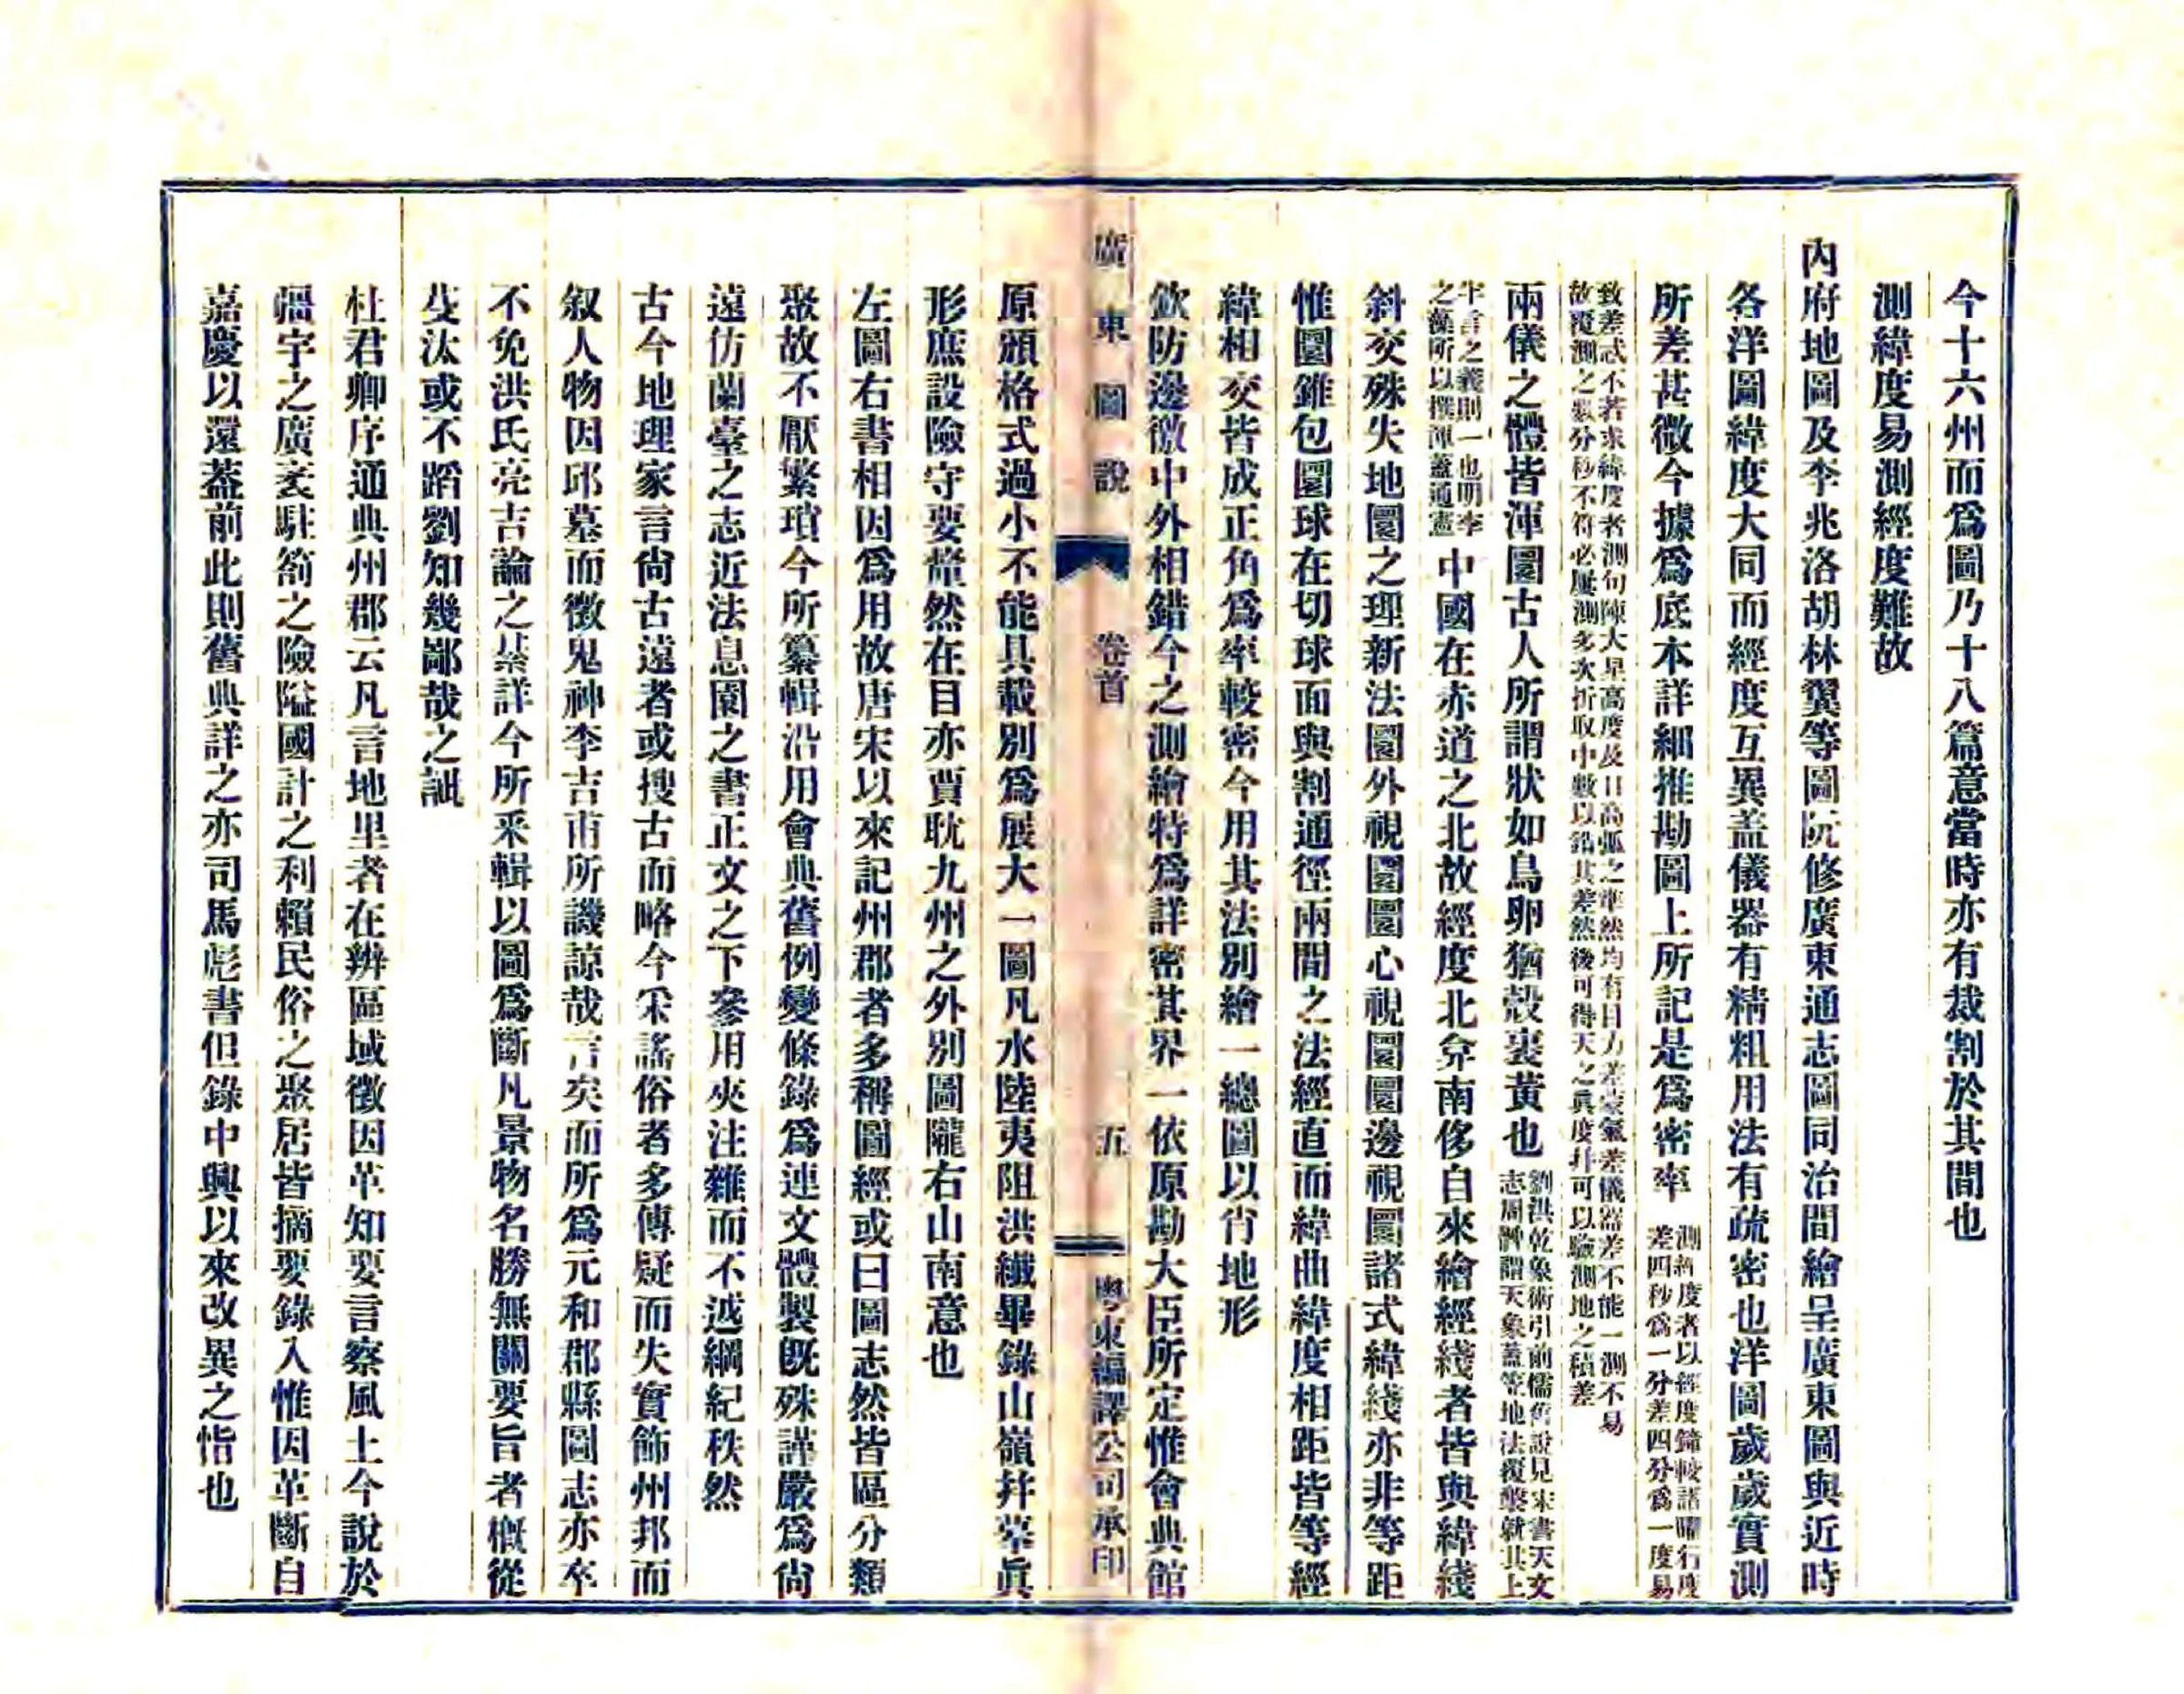 今十六州而爲圖乃十八篇意當時亦有裁割於其間也
測緯度易測經度難故
內府地圖及李兆洛胡林翼等圖阮修廣東通志圖同治間繪呈廣東圖與近時
各洋圖緯度大同而經度互異盖儀器有精粗用法有疏密也洋圖歲歲實測
所差甚微今據爲底本詳細推勘圖上所記是爲密率
測經度者以經度鐘較諸曜行度
差四秒爲一分差四分爲一度易
致差忒不著求緯度者測句陳大星高度及日高弧之準然均有目力差蒙氣差儀器差不能一測不易
故覆測之數分秒不符必屢測多次折取中數以銷其差然後可得天之眞度幷可以驗測地之積差
兩儀之體皆渾圜古人所謂狀如鳥卵猶殼裹黃也
劉洪乾象術引前儒舊說見宋書天文
志周髀謂天象蓋笠地法覆槃就其上
半言之義則一也明李
之藻所以撰渾蓋通憲
中國在赤道之北故經度北弇南侈自來繪經綫者皆與緯綫
斜交殊失地圜之理新法圜外視圜圜心視圜圜邊視圜諸式緯綫亦非等距
惟圜錐包圜球在切球面與割通徑兩間之法經直而緯曲緯度相距皆等經
緯相交皆成正角爲率較密今用其法別繪一總圖以肖地形
欽防邊徼中外相錯今之測繪特爲詳密其界一依原勘大臣所定惟會典館
廣東圖說
卷首
五
粵東編譯公司承印
原頒格式過小不能具載別爲展大一圖凡水陸夷阻洪纖畢錄山嶺幷摹眞
形庶設險守要犖然在目亦賈耽九州之外別圖隴右山南意也
左圖右書相因爲用故唐宋以來記州郡者多稱圖經或曰圖志然皆區分類
聚故不厭繁瑣今所纂輯沿用會典舊例變條錄爲連文體製既殊謹嚴爲尙
遠仿蘭臺之志近法息園之書正文之下參用夾注雜而不越綱紀秩然
古今地理家言尙古遠者或搜古而略今采謠俗者多傳疑而失實飾州邦而
叙人物因邱墓而徵鬼神李吉甫所譏諒哉言矣而所爲元和郡縣圖志亦卒
不免洪氏亮吉論之綦詳今所采輯以圖爲斷凡景物名勝無關要旨者槪從
芟汰或不蹈劉知幾鄙哉之誚
杜君卿序通典州郡云凡言地里者在辨區域徵因革知要言察風土今說於
疆宇之廣袤駐箚之險隘國計之利賴民俗之聚居皆摘要錄入惟因革斷自
嘉慶以還蓋前此則舊典詳之亦司馬彪書但錄中興以來改異之恉也